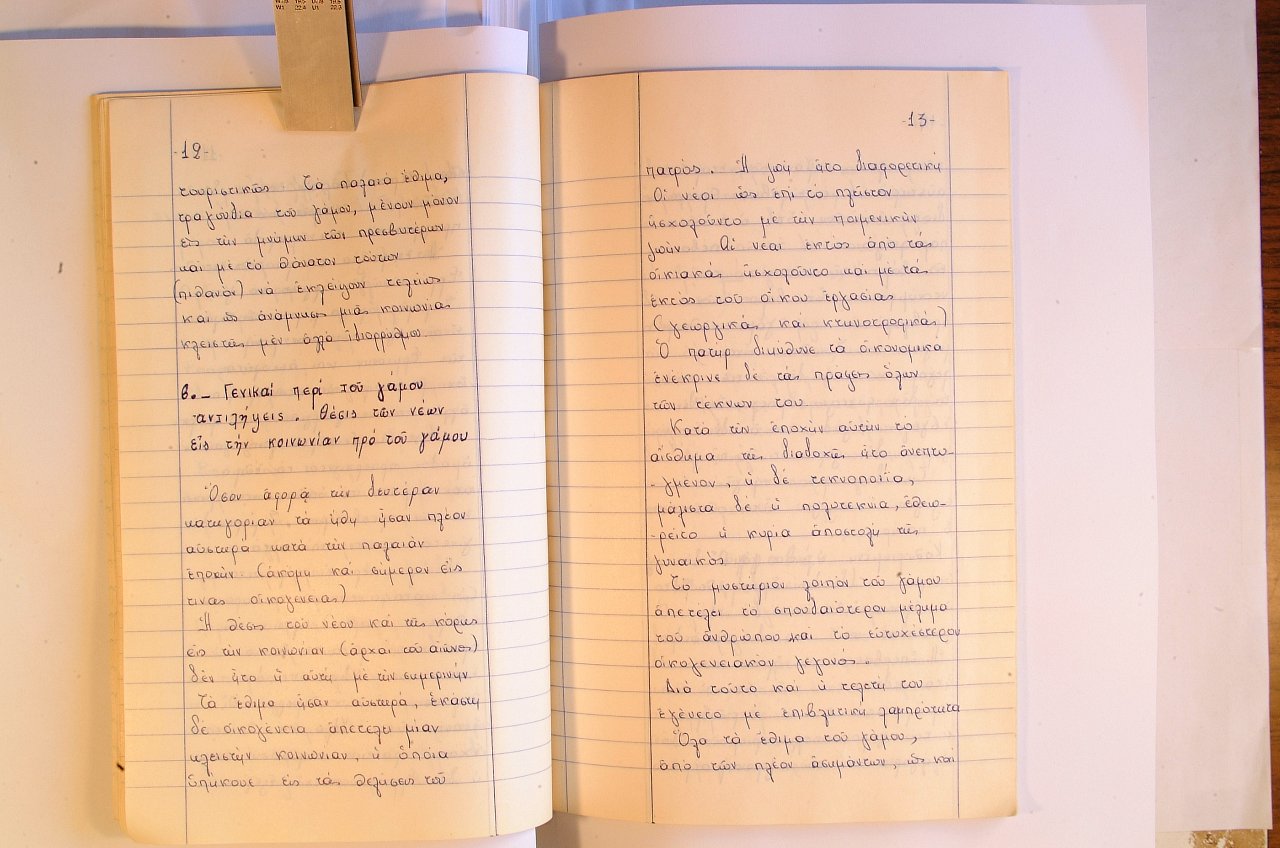 -12-
τουριστικῶς Τὰ παλαιὰ ἔθιμα,
τραγούδια τοῦ γάμου, μένουν μόνον
εἰς τὴν μνήμην τῶν πρεσβυτέρων
καὶ μὲ τὸ θάνατον τούτων
(πιθανὸν) νὰ ἐκλείψουν τελείως
καὶ ὡς ἀνάμνησις μιᾶς κοινωνίας
κλειστῆς μὲν ἀλλὰ ἰδιορρύθμου.
β.- Γενικαί περί τοῦ γάμου
ἀντιλήψεις. Θέσις τῶν νέων
εἰς τήν κοινωνίαν πρό τοῦ γάμου
Ὅσον ἀφορᾶ τὴν δευτέραν
κατηγορίαν τὰ ἤθη ἦσαν πλέον
αὐστηρὰ κατὰ τὴν παλαιὰν
ἐποχὴν (ἀκόμη καὶ σήμερον εἰς
τινας οἰκογενείας)
Ἡ θέσις τοῦ νέου καὶ τῆς κόρης
εἰς τὴν κοινωνίαν (ἀρχαὶ τοῦ αἰῶνος)
δὲν ἦτο ἡ αὐτὴ μὲ τὴν σημερινήν
Τὰ ἔθιμα ἦσαν αὐστηρά, ἑκάστη
δὲ οἰκογένεια ἀπετέλει μίαν
κλειστὴν κοινωνίαν, ἡ ὁποία
ὑπήκουε εἰς τὰς θελήσεις τοῦ
-13-
πατρός. Ἡ ζωὴ ἦτο διαφορετική
Οἱ νέοι ὡς ἐπὶ τὸ πλεῖστον
ἠσχολοῦντο μὲ τὴν ποιμενικὴν
ζωὴν Αἱ νέαι ἐκτὸς ἀπὸ τὰς
οἰκιακὰς ἠσχολοῦντο καὶ μὲ τὰς
ἐκτὸς τοῦ οἴκου ἐργασίας
(γεωργικὰς καὶ κτηνοτροφικάς)
Ὁ πατὴρ διηύθυνε τὰ οἰκονομικά
ἐνέκρινε δὲ τὰς πράξεις ὅλων
τῶν τέκνων του
Κατὰ τὴν ἐποχὴν αὐτὴν τὸ
αἴσθημα τῆς διαδοχῆς ἦτο ἀνεπτυ-
-γμένον, ἡ δὲ τεκνοποιΐα,
μάλιστα δὲ ἡ πολυτεκνία, ἐθεω-
-ρεῖτο ἡ κυρία ἀποστολὴ τῆς
γυναικός
Τὸ μυστήριον λοιπὸν τοῦ γάμου
ἀπετέλει τὸ σπουδαιότερον μέλημα
τοῦ ἀνθρώπου καὶ τὸ εὐτυχέστερον
οἰκογενειακὸν γεγονός.
Διὰ τοῦτο καὶ ἡ τελετή του
ἐγένετο μὲ ἐπιβλητικὴ λαμπρότητα
Ὅλα τὰ ἔθιμα τοῦ γάμου,
ἀπὸ τῶν πλέον ἀσημάντων, ὡς καὶ